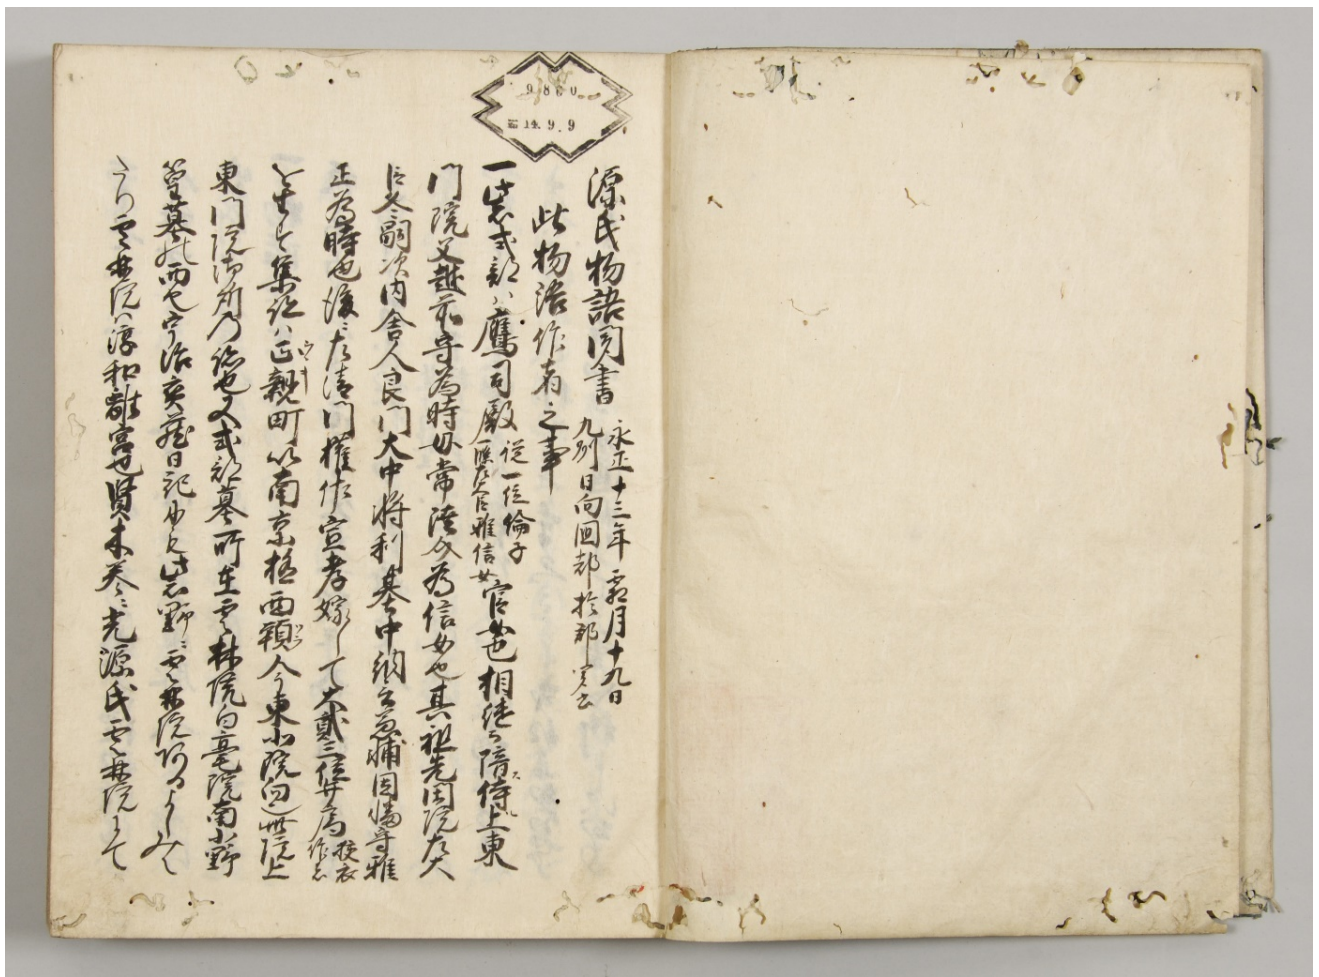 9860
14.9.9
源氏物語聞書 永正十三年 霜月十九日
九州日向国都於郡
此物語作者之事
一紫式部ハ鷹司殿 従一位倫子
一條左大臣雅信女 官女也相継 陪侍上東
門院父越前守為時母常陸介為信女也其祖先閑院左大
臣冬嗣次内舎人良門大中将利基中納言兼輔因幡守雅
正為時也後ニ左衛門権佐宣孝嫁して大貳三位弁局 狭衣
作者
集 ハ正親町以南京極西頬今東北院向 院上
東門院御所乃 也又式部墓所在雲林院白毫院南小野
篁墓 西也宇治 蔵日記 紫野ニ雲林院 みえ
たり雲林院ハ淳和離宮也賢木巻ニ光源氏雲林院 て